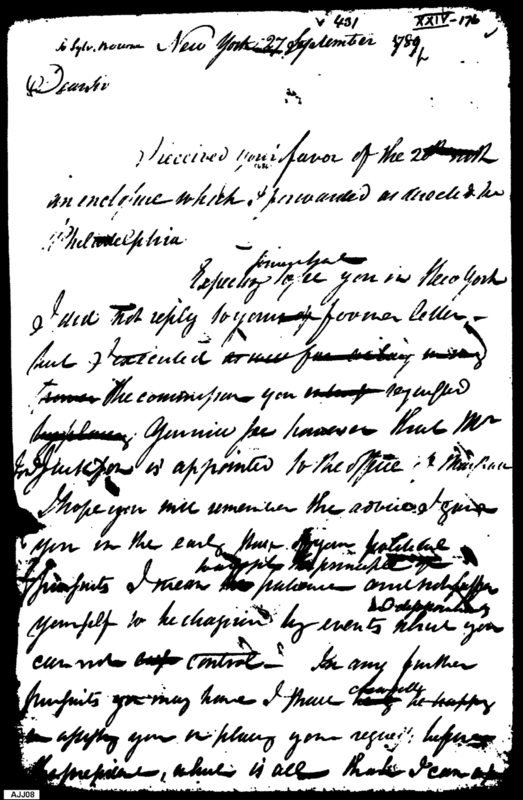 431 XXIV-176
to Sylv. Bourne New York 27 September 1789
Dear sir
I received your favor of the 20th
an enclosure which I forwarded as directed to
Philadelphia
Expecting to see you in New York
I did not reply to your former letter
but I executed
the commission you requested
You will see however that Mr
Jackson is appointed to the office
I hope you will remember the advice I gave
you in the early part of your political
pursuits I mean patience and not suffer
yourself to be chagrined by events which you
can not control In any further
pursuits you may have I shall cheerfully
you in placing your request before
the president, which is all that I can
AJJ08